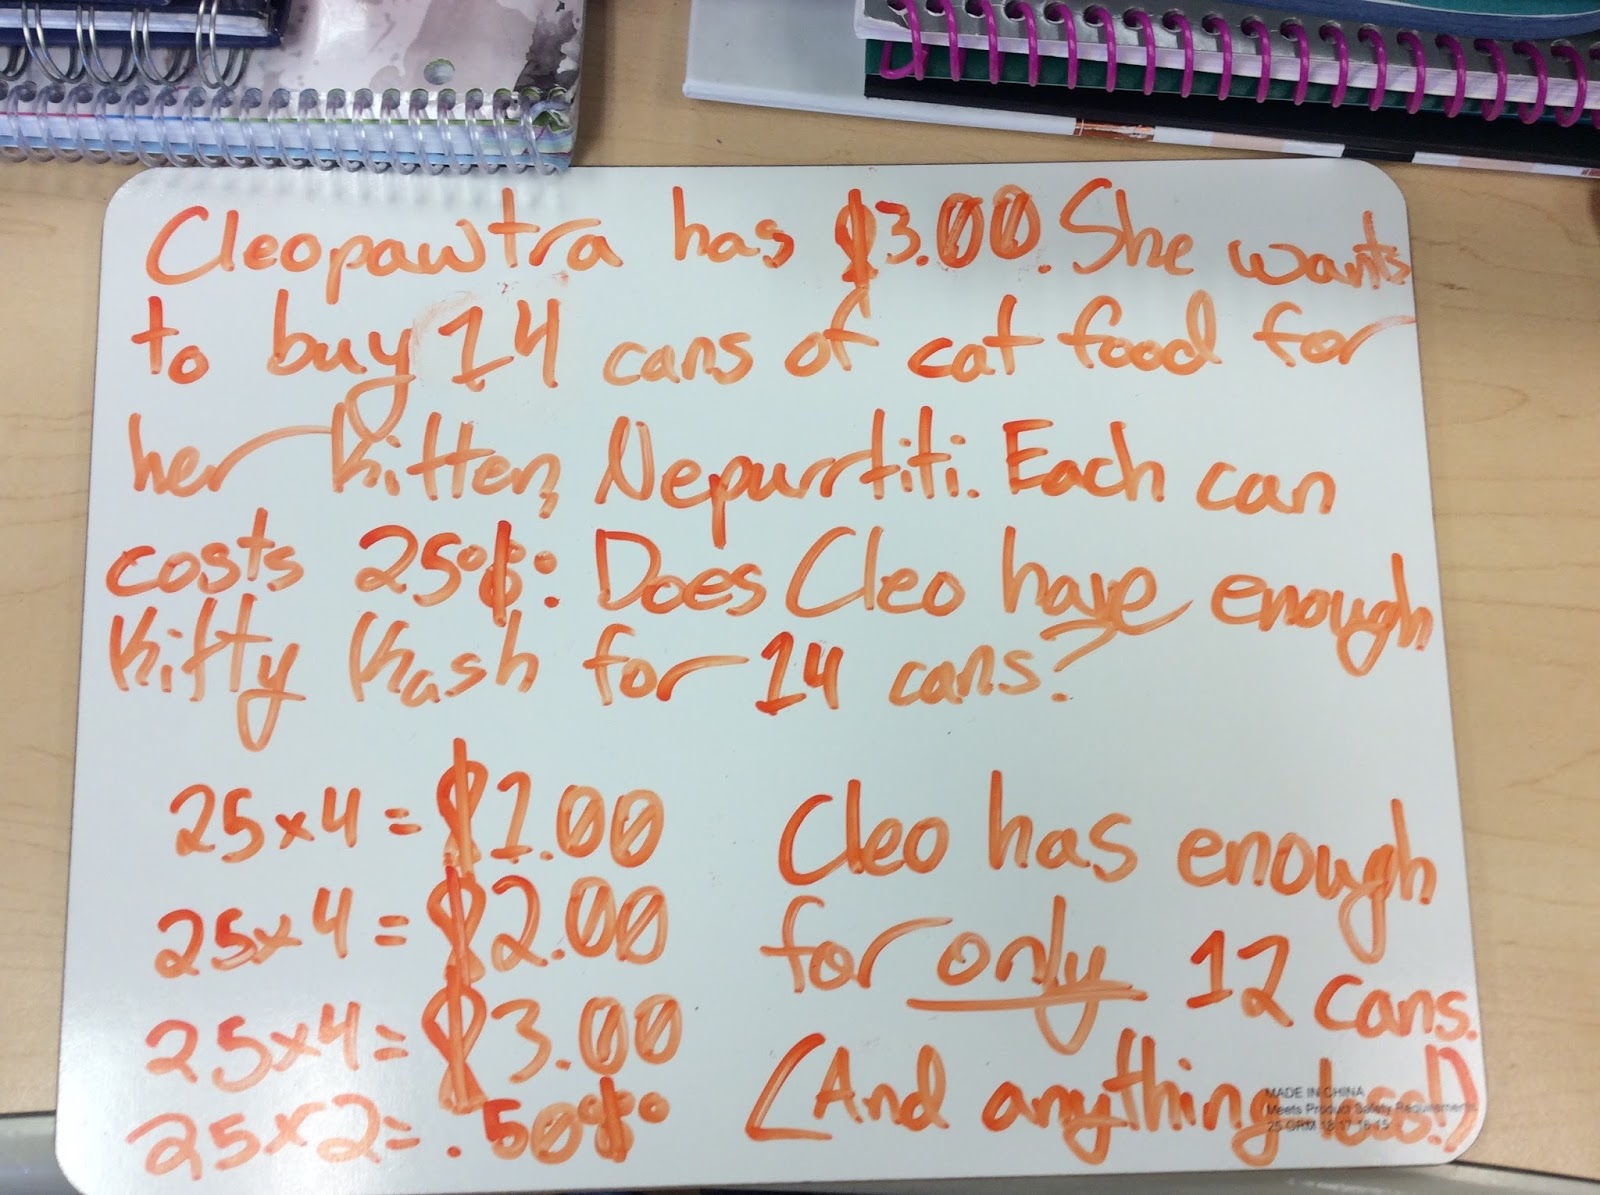 Cleopawtra has $3.00. She wants
to buy 14 cans of cat food for
her kitten, Nepurrtiti. Each can
costs 25¢. Does Cleo have enough
Kitty Kash for 14 cans?
25x4 = $1.00
25x4 = $2.00
25x4 = $3.00
25x2 = .50¢
Cleo has enough
for only 12 cans.
(And anything less!)
MADE IN CHINA
Meets Product Safety Requirements